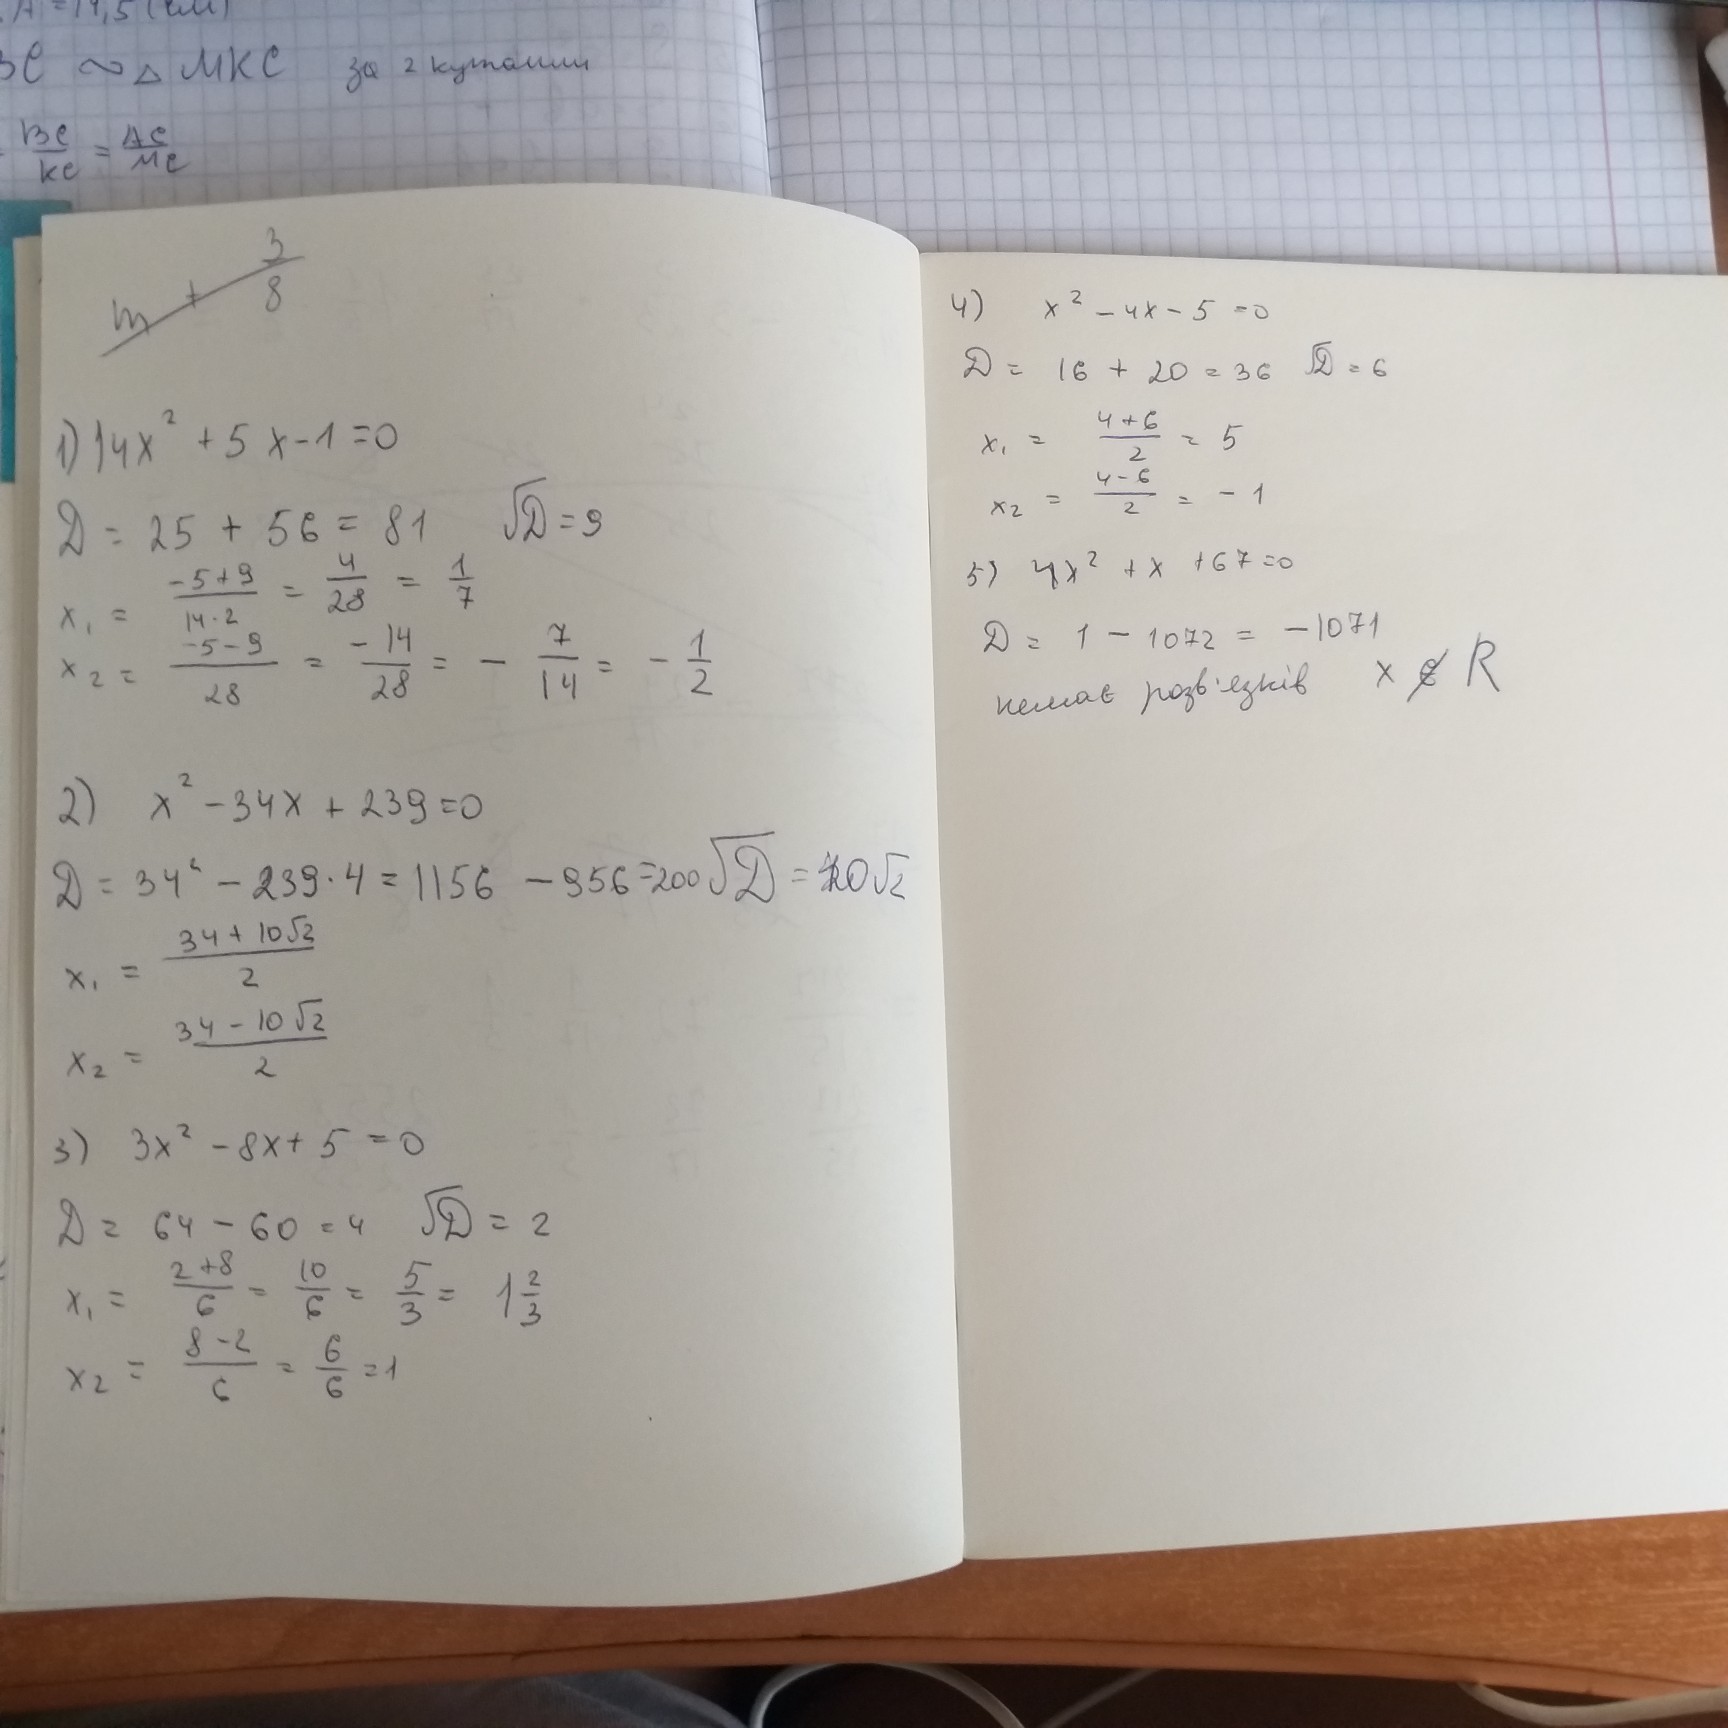 A = 14,5 (см)
BC ∾ △ MKC за 2 кутами
= BC/KC = AC/MC
m + 3/8
1) 14x² + 5x - 1 = 0
D = 25 + 56 = 81 √D = 9
x₁ = (-5+9)/(14·2) = 4/28 = 1/7
x₂ = (-5-9)/28 = -14/28 = - 7/14 = - 1/2
2) x² - 34x + 239 = 0
D = 34² - 239·4 = 1156 - 956 = 200 √D = 10√2
x₁ = (34 + 10√2)/2
x₂ = (34 - 10√2)/2
3) 3x² - 8x + 5 = 0
D = 64 - 60 = 4 √D = 2
x₁ = (2+8)/6 = 10/6 = 5/3 = 1 2/3
x₂ = (8-2)/6 = 6/6 = 1
4) x² - 4x - 5 = 0
D = 16 + 20 = 36 √D = 6
x₁ = (4+6)/2 = 5
x₂ = (4-6)/2 = -1
5) 4x² + x + 67 = 0
D = 1 - 1072 = -1071
немає розв'язків x ∉ R